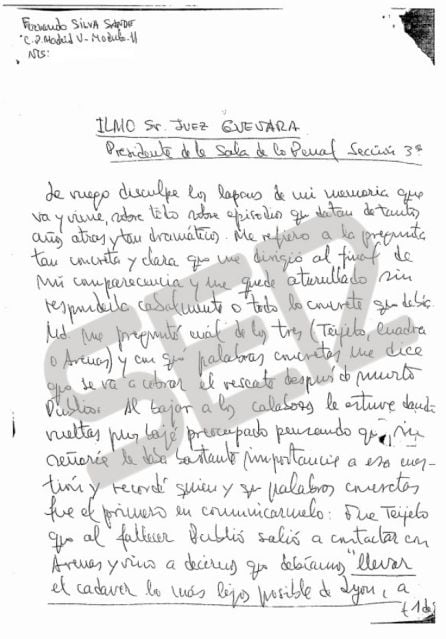 Fernando SILVA SANDE
C.P. Madrid V - Modulo-11
NIS:
ILMO Sr. JUEZ GUEVARA
Presidente de la Sala de lo Penal Sección 3ª
Le ruego disculpe los lapsus de mi memoria que
va y viene, sobre todo sobre episodios que datan de tantos
años atras y tan dramáticos. Me refiero a la pregunta
tan concreta y clara que me dirigió al final de
mi comparecencia y me quede aturullado sin
responderla cabalmente o todo lo concreto que debía
Ud. me preguntó cuál de los tres (Teijelo, Cuadra
o Arenas) y con qué palabras concretas me dice
que se va a cobrar el rescate después de muerto
Publio. Al bajar a los calabozos le estuve dando
vueltas pues bajé preocupado pensando que su
señoría le daba bastante importancia a esa cues-
tión y recordé quien y qué palabras concretas
fue el primero en comunicarmelo: Fue Teijelo
que al fallecer Publio salió a contactar con
Arenas y vino a decirnos que debíamos "llevar
el cadaver lo más lejos posible de Lyon, a
SER